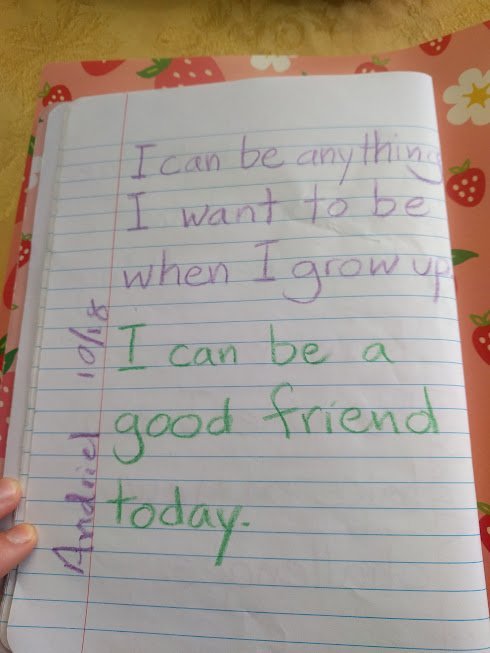 I can be anything
I want to be
when I grow up
I can be a
good friend
today.
Andriel 10/18